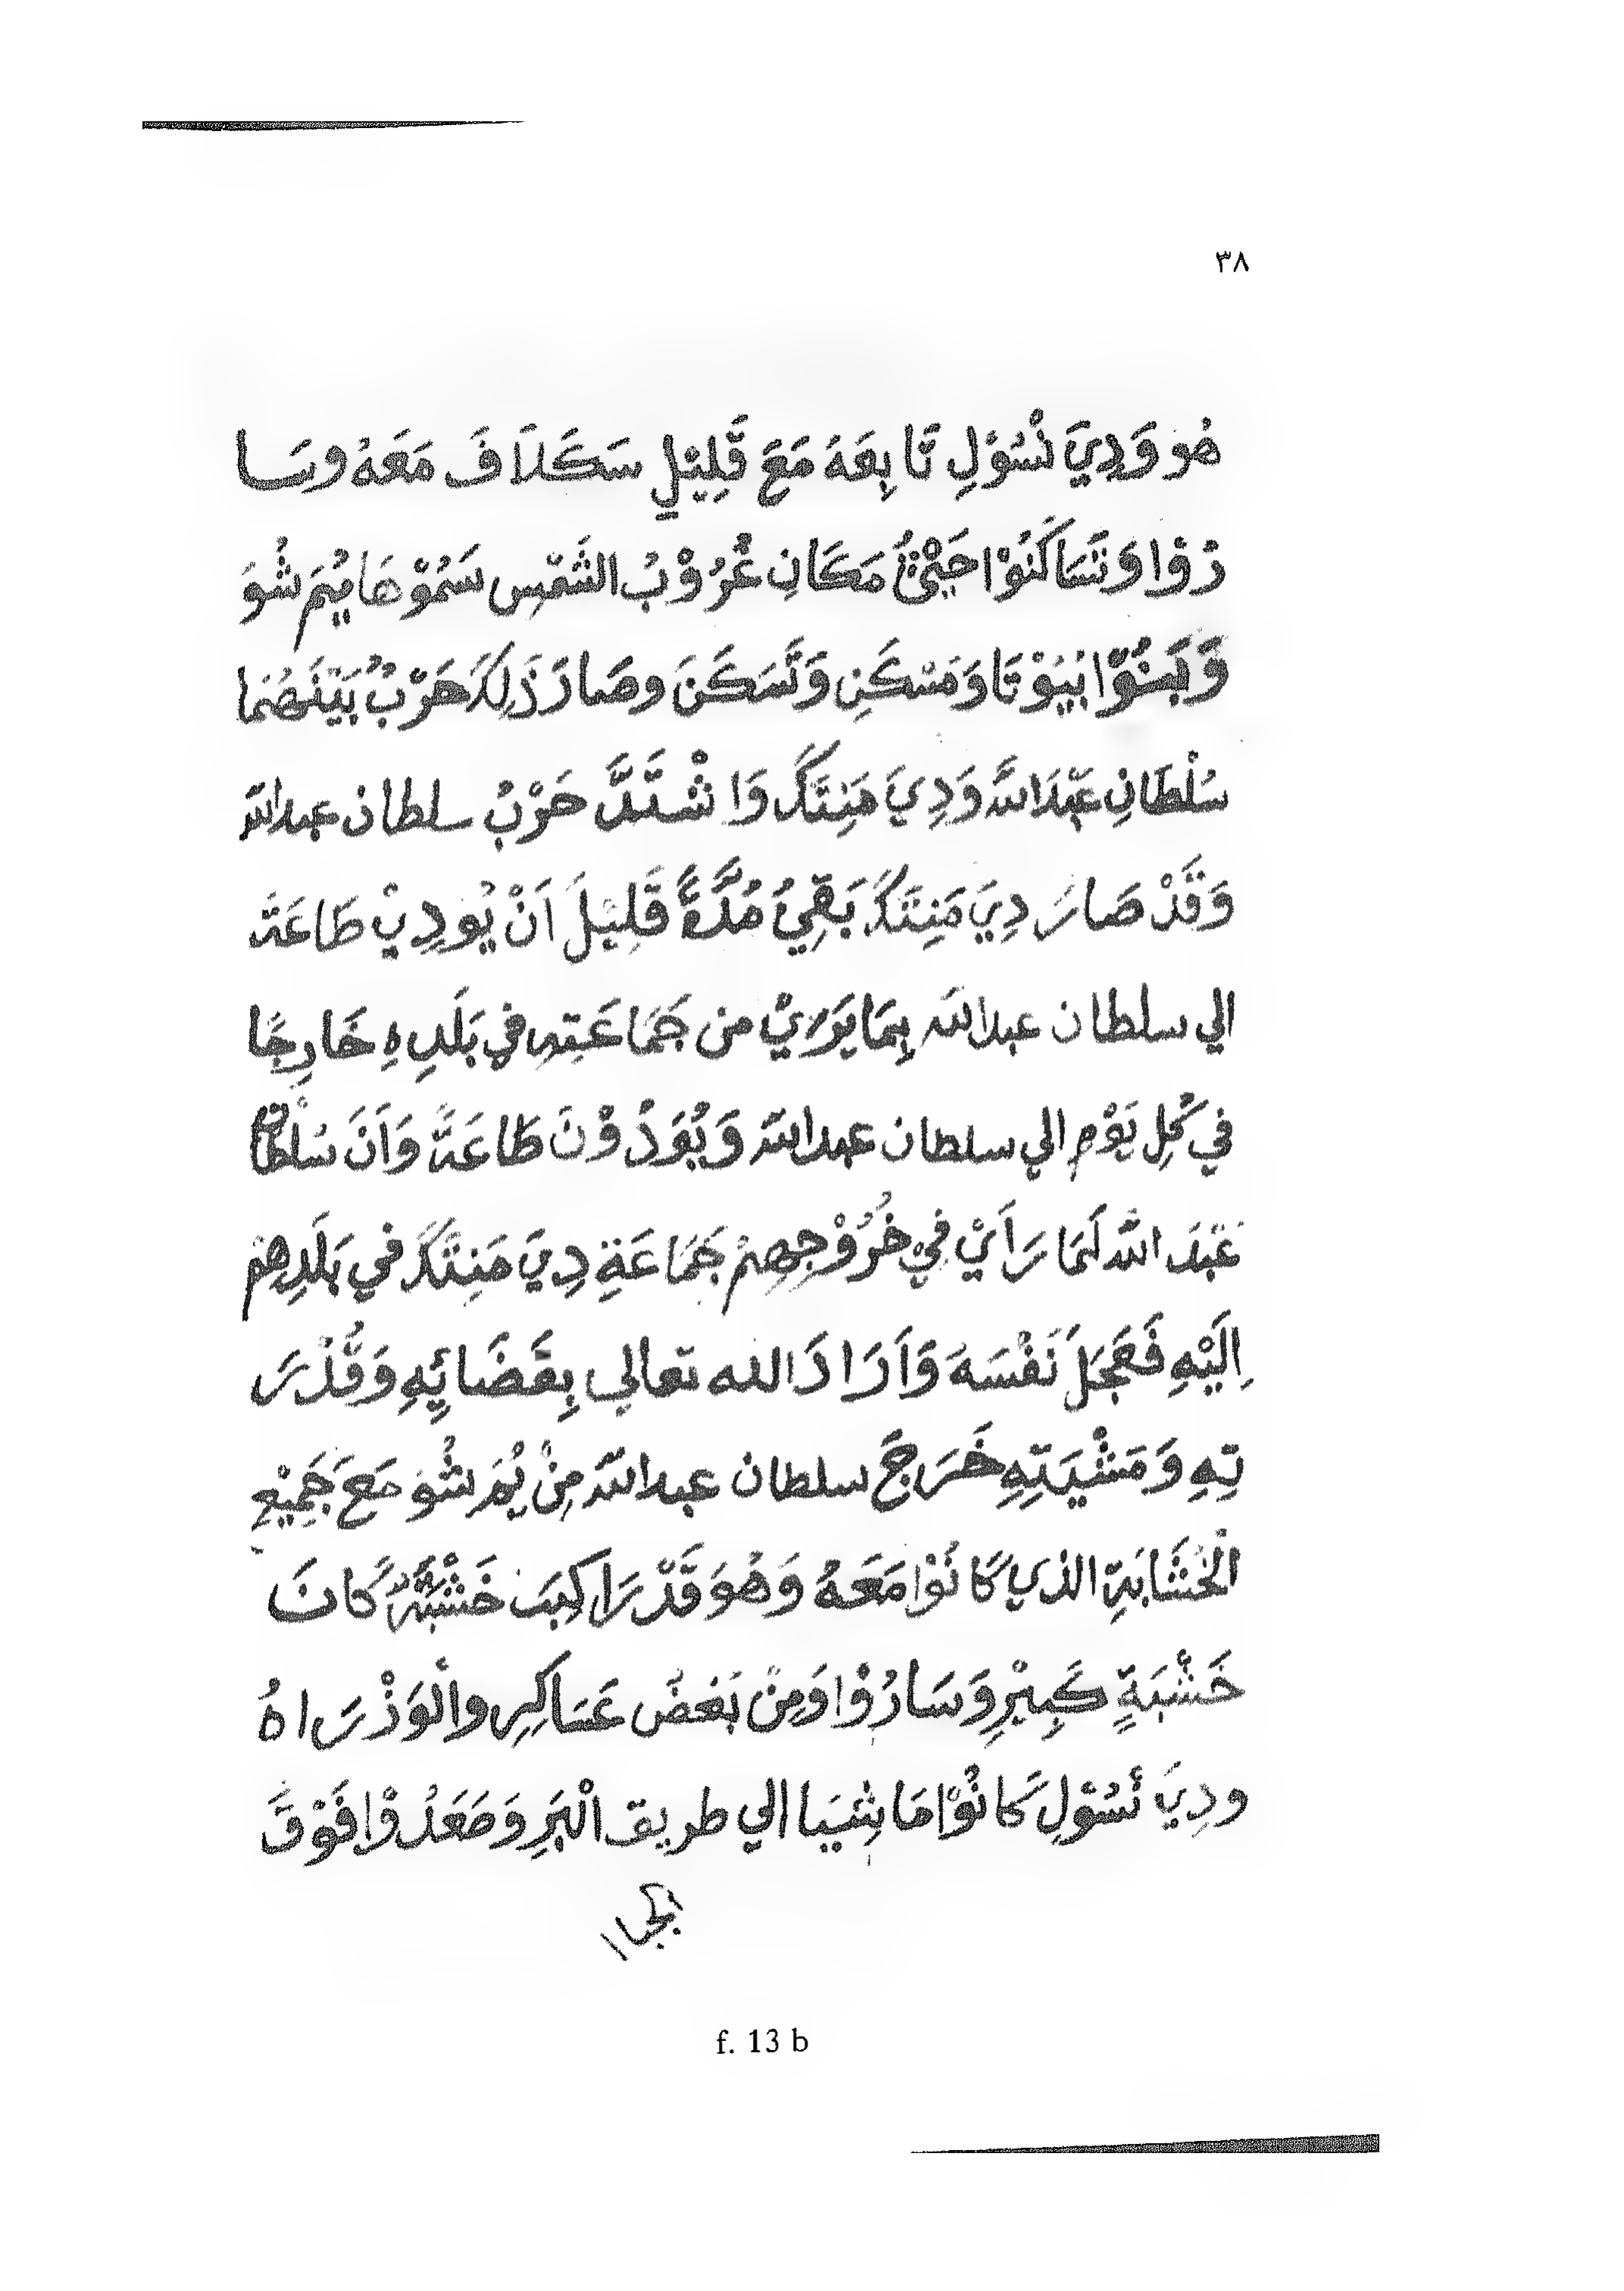 ٣٨
هُو وَدِيَ نْسُوْلِ تَابِعَهُ مَعَ قَلِيْلٍ سَكَلاَفَ مَعَهُ وسَا
رُوْا وَتَسَاكَنُوْا حَتْىٰ مَكَانِ غُرُوْبُ الشَّمْسِ سَمُوْهَا يُمَ شُوَ
وَبَنُوْا بُيُوْتَا وَمَسْكَنِ وَتَسَكَنَ وصَارَ ذَلِكَ حَرْبُ بَيْنَهُمَا
سُلْطَانِ عَبْدَ اللَّهَ وَدِيَ مَنِتَكَ وَاشْتَدَّ حَرْبُ سلطان عبد الله
وَقَدْ صَارَ دِيَ مَنِتَكَ بَقِيُ مُدَّةً قَلِيْلَ اَنْ يُودِيْ طَاعَةً
الي سلطان عبد الله بِمَا يَرَيْ من جَمَاعَتِهِ فِي بَلَدِهِ خَارِجًا
في كُلِ يَوْمِ الي سلطان عبد الله وَيُوَدُوْنَ طَاعَةً وَاَنَ سُلطان
عَبْدَ اللَّه لَمَا رَاَيْ فِيْ خُرُوْجِهِمْ جَمَاعَةِ دِيَ مَنِتَكَ في بَلَدِهِمْ
اِلَيْهِ فَعَجَلَ نَفْسَهَ وَاَرَادَ الله تعالي بِقَضَائِهِ وَقُدْرَ
تِهِ وَمَشْيَتِهِ خَرَجَ سلطان عبد الله مِنْ يُمَ شُوَ مَعَ جَمِيْعِ
الْخَشَابَةِ الذي كَانُوْا مَعَهُ وَهُوَ قَدْ رَاكِبَ خَشْبَةً كَانَ
خَشْبَةٍ كَبِيْرِ وَسَارُوْا وَمِنْ بَعْضُ عَسَاكِرِ والْوَزْرَاهُ
ودِيَ نْسُوْلِ كَانُوْا مَاشِيَا الي طريق الْبَرِ وَصَعَدُوْا فَوْقَ
الجبال
f. 13 b